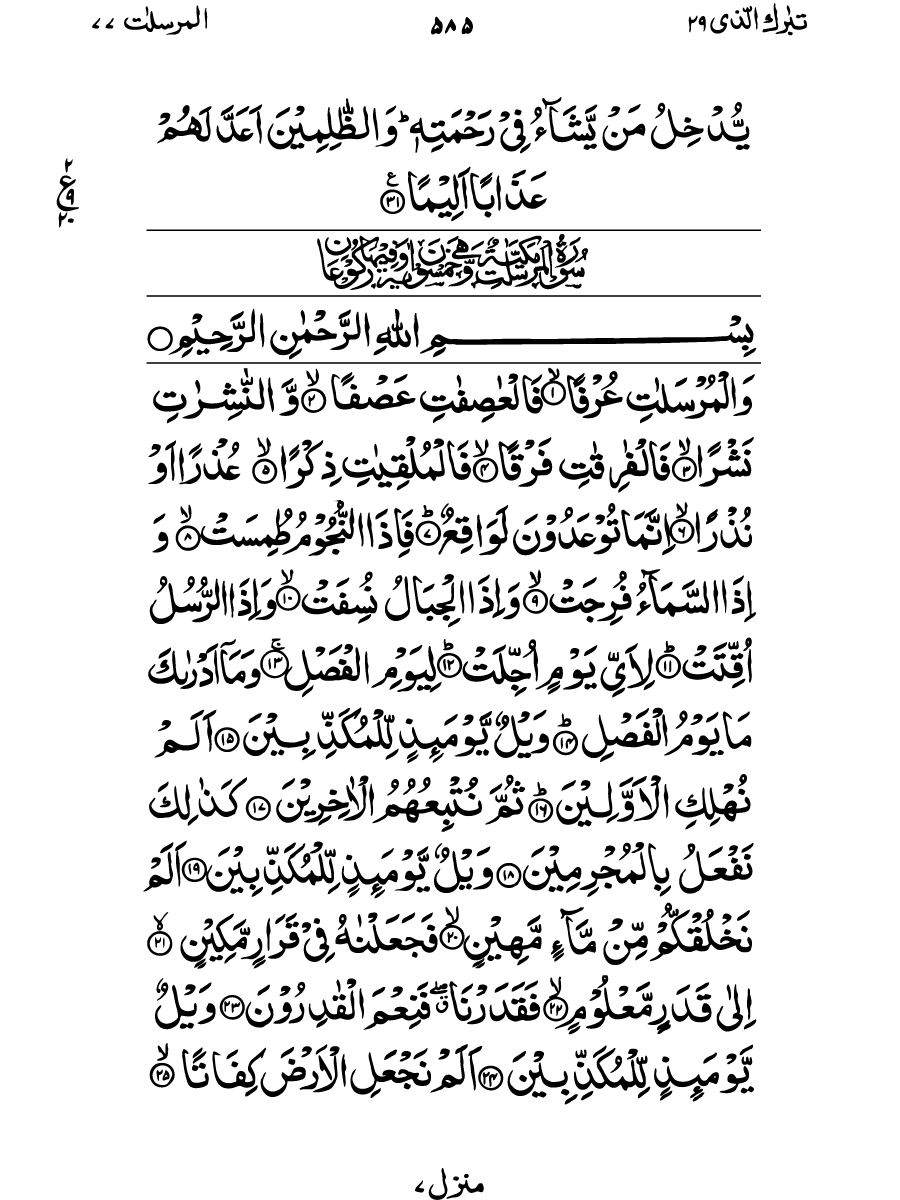 تبٰرك الّذی ۲۹ ۵۸۵ المرسلٰت ۷۷
يُّدْخِلُ مَنْ يَّشَآءُ فِيْ رَحْمَتِهٖ ؕ وَالظّٰلِمِيْنَ اَعَدَّ لَهُمْ
عَذَابًا اَلِيْمًا ﴿۳۱﴾ ۧ
۲ ع ۹ ۲۰
سُوْرَةُ الْمُرْسَلٰتِ مَكِّيَّةٌ وَّهِيَ خَمْسُوْنَ اٰيَةً وَّفِيْهَا رُكُوْعَانِ
بِسْمِ اللّٰهِ الرَّحْمٰنِ الرَّحِيْمِ
وَالْمُرْسَلٰتِ عُرْفًا ﴿۱﴾ ۙ فَالْعٰصِفٰتِ عَصْفًا ﴿۲﴾ ۙ وَّالنّٰشِرٰتِ
نَشْرًا ﴿۳﴾ ۙ فَالْفٰرِقٰتِ فَرْقًا ﴿۴﴾ ۙ فَالْمُلْقِيٰتِ ذِكْرًا ﴿۵﴾ ۙ عُذْرًا اَوْ
نُذْرًا ﴿۶﴾ ۙ اِنَّمَا تُوْعَدُوْنَ لَوَاقِعٌ ﴿۷﴾ ؕ فَاِذَا النُّجُوْمُ طُمِسَتْ ﴿۸﴾ ۙ وَ
اِذَا السَّمَآءُ فُرِجَتْ ﴿۹﴾ ۙ وَاِذَا الْجِبَالُ نُسِفَتْ ﴿۱۰﴾ ۙ وَاِذَا الرُّسُلُ
اُقِّتَتْ ﴿۱۱﴾ ؕ لِاَيِّ يَوْمٍ اُجِّلَتْ ﴿۱۲﴾ ؕ لِيَوْمِ الْفَصْلِ ﴿۱۳﴾ ۚ وَمَاۤ اَدْرٰىكَ
مَا يَوْمُ الْفَصْلِ ﴿۱۴﴾ ؕ وَيْلٌ يَّوْمَئِذٍ لِّلْمُكَذِّبِيْنَ ﴿۱۵﴾ اَلَمْ
نُهْلِكِ الْاَوَّلِيْنَ ﴿۱۶﴾ ؕ ثُمَّ نُتْبِعُهُمُ الْاٰخِرِيْنَ ﴿۱۷﴾ كَذٰلِكَ
نَفْعَلُ بِالْمُجْرِمِيْنَ ﴿۱۸﴾ وَيْلٌ يَّوْمَئِذٍ لِّلْمُكَذِّبِيْنَ ﴿۱۹﴾ اَلَمْ
نَخْلُقْكُّمْ مِّنْ مَّآءٍ مَّهِيْنٍ ﴿۲۰﴾ ۙ فَجَعَلْنٰهُ فِيْ قَرَارٍ مَّكِيْنٍ ﴿۲۱﴾ ۙ
اِلٰى قَدَرٍ مَّعْلُوْمٍ ﴿۲۲﴾ ۙ فَقَدَرْنَا ۖ ق فَنِعْمَ الْقٰدِرُوْنَ ﴿۲۳﴾ وَيْلٌ
يَّوْمَئِذٍ لِّلْمُكَذِّبِيْنَ ﴿۲۴﴾ اَلَمْ نَجْعَلِ الْاَرْضَ كِفَاتًا ﴿۲۵﴾ ۙ
منزل ۷